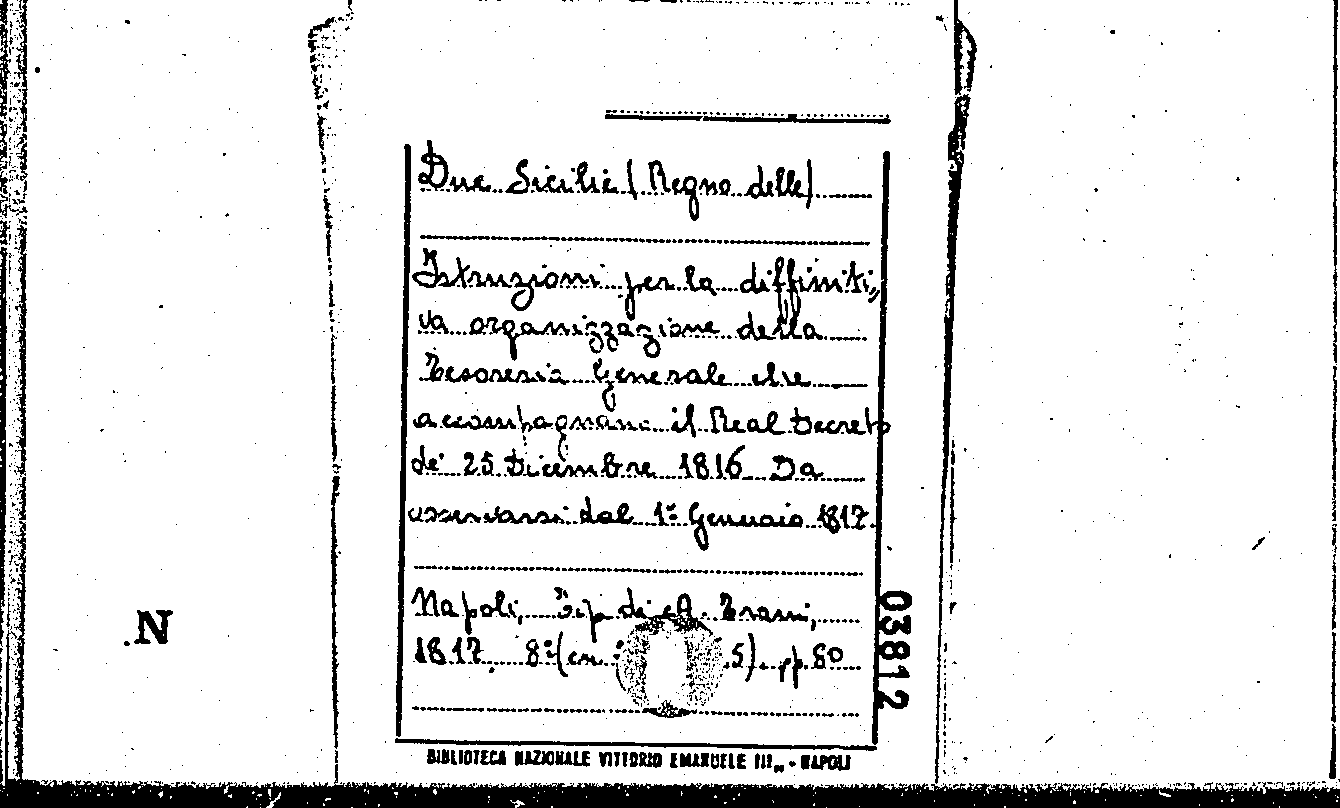 Due Sicilie (Regno delle)
Istruzioni per la diffiniti„
va organizzazione della
Tesoreria Generale che
accompagnano il Real Decreto
de' 25 Dicembre 1816 Da
osservarsi dal 1º Gennaio 1817.
Napoli, Tip. di A. Trani,
1817. 8º (cm. 5). pp. 80
BIBLIOTECA NAZIONALE VITTORIO EMANUELE III„ - NAPOLI
03812
N